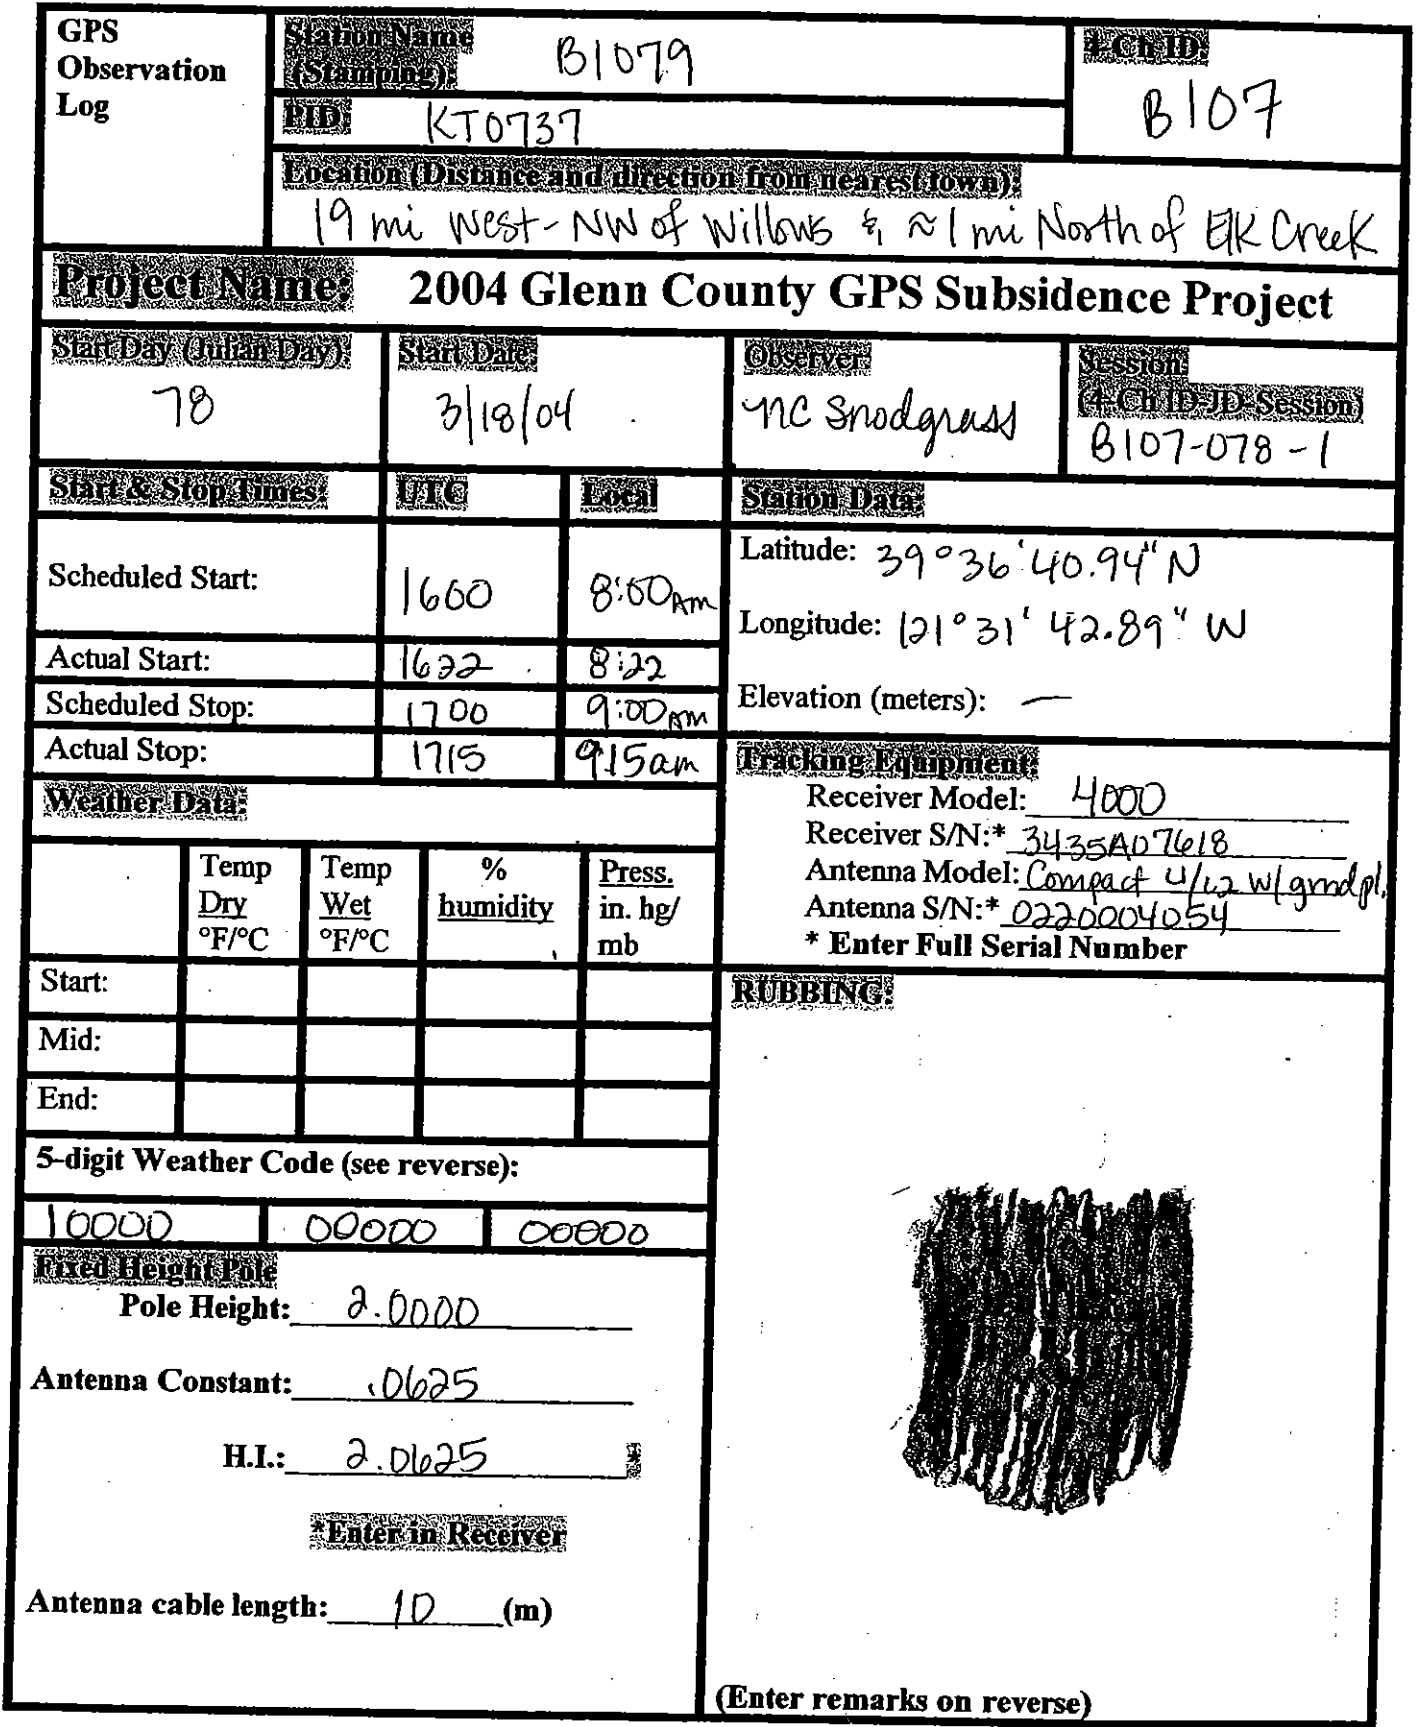 GPS
Observation
Log
Station Name
(Stamping):
B1079
4-Ch ID:
B107
PID:
KT0737
Location (Distance and direction from nearest town):
19 mi West-NW of Willows & ≈1 mi North of Elk Creek
Project Name: 2004 Glenn County GPS Subsidence Project
Start Day (Julian Day):
78
Start Date:
3/18/04
Observer:
NC Snodgrass
Session:
(4-Ch ID-JD-Session)
B107-078-1
Start & Stop Times: UTC Local
Scheduled Start: 1600 8:00 Am
Actual Start: 1622 8:22
Scheduled Stop: 1700 9:00 Am
Actual Stop: 1715 9:15am
Station Data:
Latitude: 39°36'40.94"N
Longitude: 121°31'42.89"W
Elevation (meters): —
Tracking Equipment:
Receiver Model: 4000
Receiver S/N:* 3435A07618
Antenna Model: Compact L1/L2 w/grndpl.
Antenna S/N:* 0220004054
* Enter Full Serial Number
Weather Data:
Temp
Dry
°F/°C
Temp
Wet
°F/°C
%
humidity
Press.
in. hg/
mb
Start:
Mid:
End:
5-digit Weather Code (see reverse):
10000 00000 00000
Fixed Height Pole
Pole Height: 2.0000
Antenna Constant: .0625
H.I.: 2.0625 *
*Enter in Receiver
Antenna cable length: 10 (m)
RUBBING:
(Enter remarks on reverse)